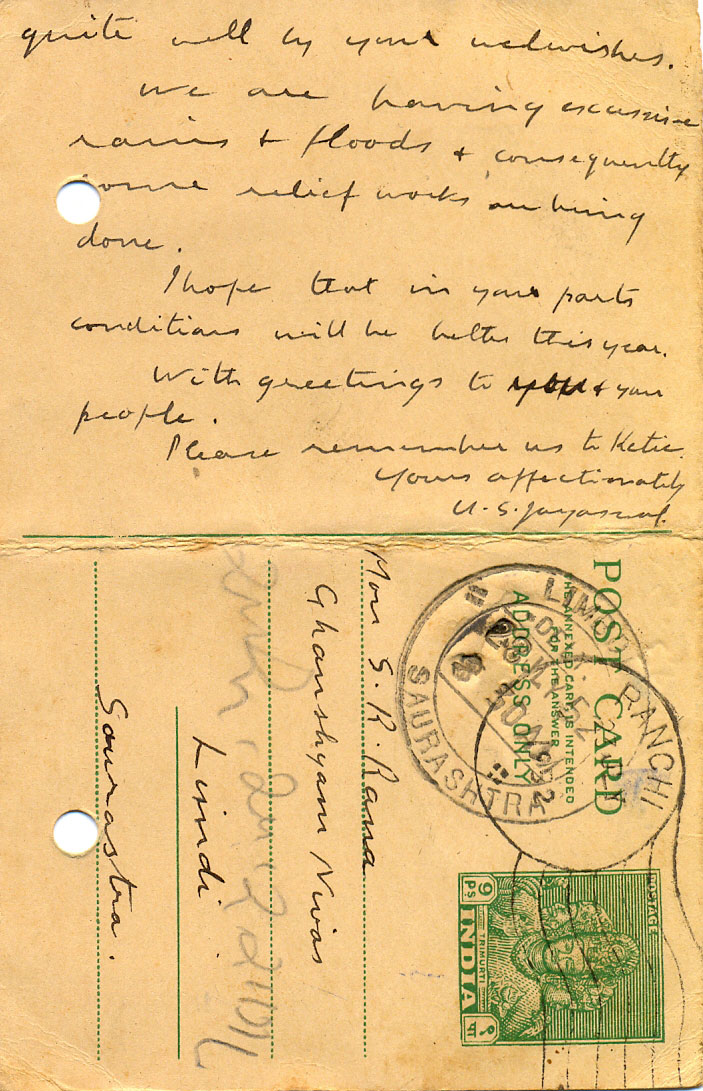 quite well by your wellwishes.
We are having excessive
rains & floods & consequently
some relief works are being
done.
I hope that in your parts
conditions will be better this year.
With greetings to you & your
people.
Please remember us to Ketie.
Yours affectionately
U. S. Jayaswal.
POST CARD
THE ANNEXED CARD IS INTENDED
FOR THE ANSWER
ADDRESS ONLY
Mon S. R. Rana
Ghanshyam Nivas
Limdi
Saurastra.
SAURASHTRA
RANCHI
POSTAGE
9 PS
TRIMURTI
INDIA